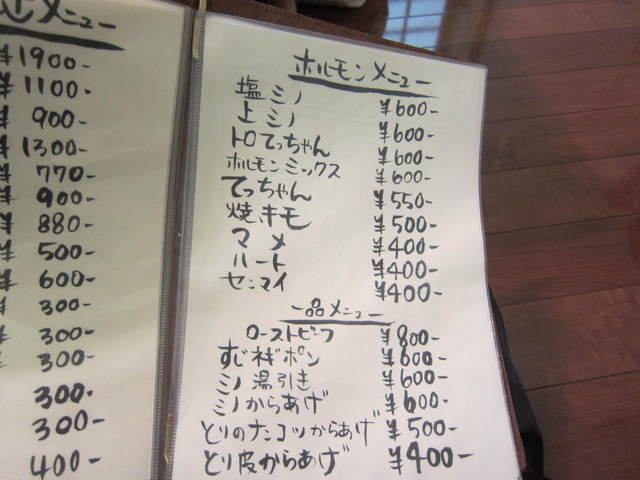 メニュー
¥1900-
¥1100-
¥900-
¥1300-
¥770-
¥900-
¥880-
¥500-
¥600-
¥300-
¥300-
¥300-
300-
300-
400-
ホルモンメニュー
塩ミノ ¥600-
上ミノ ¥600-
トロてっちゃん ¥600-
ホルモンミックス ¥600-
てっちゃん ¥550-
焼キモ ¥500-
マメ ¥400-
ハート ¥400-
センマイ ¥400-
一品メニュー
ローストビーフ ¥800-
すじネギポン ¥600-
ミノ湯引き ¥600-
ミノからあげ ¥600-
とりのナンコツからあげ ¥500-
とり皮からあげ ¥400-